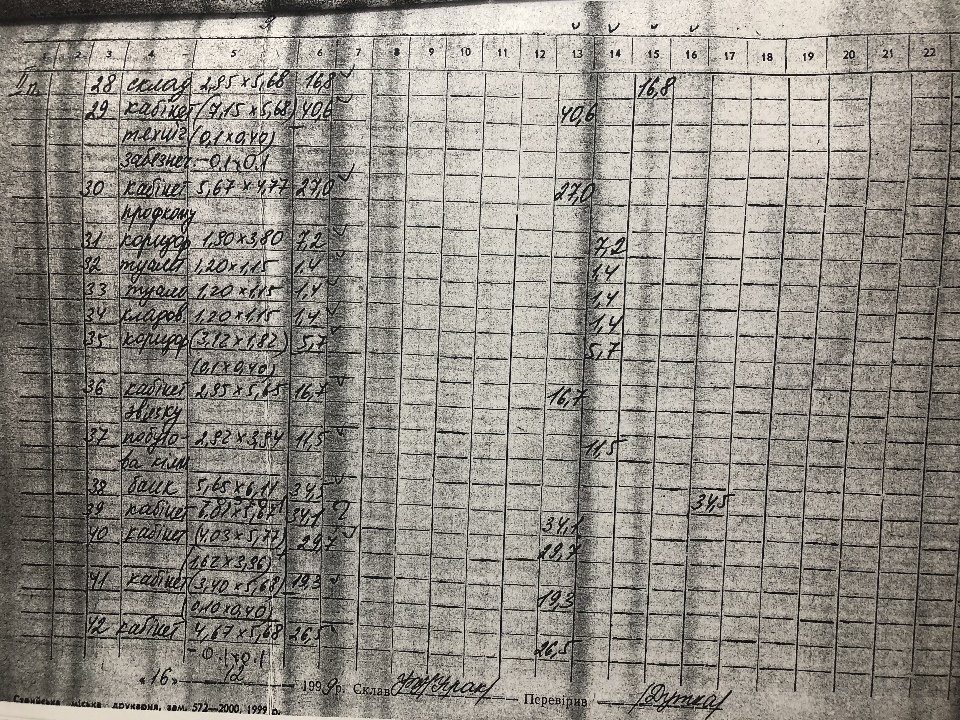 1 2 3 4 5 6 7 8 9 10 11 12 13 14 15 16 17 18 19 20 21 22
IIп 28 склад 2,95×5,68 16,8 16,8
29 кабінет (7,15×5,68) 40,6 40,6
техніч (0,1×0,40)
забезпеч. -0,1×0,1
30 кабінет 5,67×4,77 27,0 27,0
профкому
31 коридор 1,90×3,80 7,2 7,2
32 туалет 1,20×1,15 1,4 1,4
33 туалет 1,20×1,15 1,4 1,4
34 кладов. 1,20×1,15 1,4 1,4
35 коридор (3,12×1,82) 5,7 5,7
(0,1×0,40)
36 кабінет 2,95×5,65 16,7 16,7
зв'язку
37 побуто- 2,92×3,94 11,5 11,5
ва кімн
38 банк 5,65×6,11 34,5 34,5
39 кабінет 34,1 34,1
40 кабінет (4,03×5,77) 29,7 29,7
(1,62×3,96)
41 кабінет (3,40×5,68) 19,3 19,3
(0,10×0,40)
42 кабінет 4,67×5,68 26,5 26,5
-0,1×0,1
«16» 12 1999 р. Склав Перевірив /Дутка/
міська друкарня, зам. 572—2000, 1999 р.